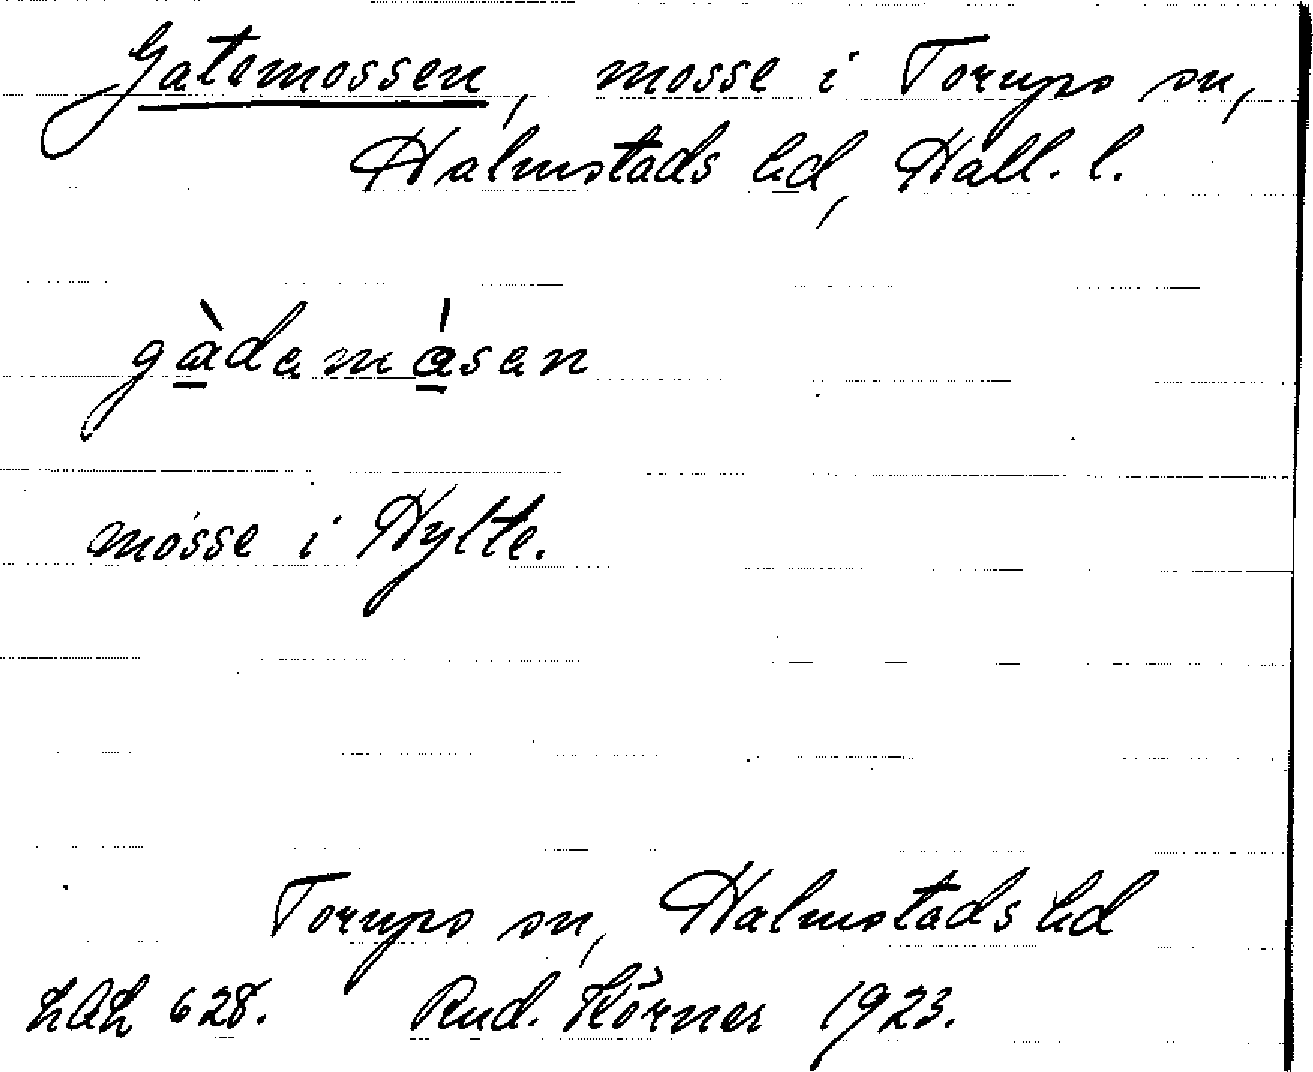 Gatemossen, mosse i Torups sn,
Halmstads hd, Hall. l.
gàdamåsan
mosse i Hylte.
Torups sn, Halmstads hd
LAL 628. Rud. Hörner 1923.